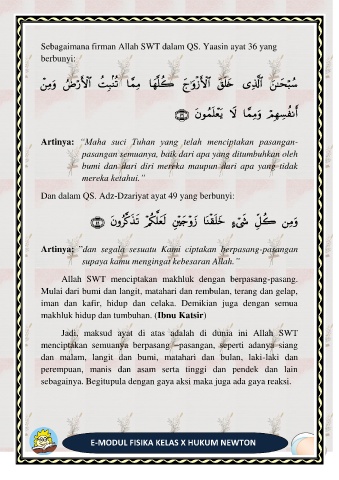 Sebagaimana firman Allah SWT dalam QS. Yaasin ayat 36 yang
berbunyi:
سُبْحَٰنَ ٱلَّذِى خَلَقَ ٱلْأَزْوَٰجَ كُلَّهَا مِمَّا تُنۢبِتُ ٱلْأَرْضُ وَمِنْ
أَنفُسِهِمْ وَمِمَّا لَا يَعْلَمُونَ ۝٣٦
Artinya: "Maha suci Tuhan yang telah menciptakan pasangan-
pasangan semuanya, baik dari apa yang ditumbuhkan oleh
bumi dan dari diri mereka maupun dari apa yang tidak
mereka ketahui."
Dan dalam QS. Adz-Dzariyat ayat 49 yang berbunyi:
وَمِن كُلِّ شَىْءٍ خَلَقْنَا زَوْجَيْنِ لَعَلَّكُمْ تَذَكَّرُونَ ۝٤٩
Artinya: "dan segala sesuatu Kami ciptakan berpasang-pasangan
supaya kamu mengingat kebesaran Allah."
Allah SWT menciptakan makhluk dengan berpasang-pasang.
Mulai dari bumi dan langit, matahari dan rembulan, terang dan gelap,
iman dan kafir, hidup dan celaka. Demikian juga dengan semua
makhluk hidup dan tumbuhan. (Ibnu Katsir)
Jadi, maksud ayat di atas adalah di dunia ini Allah SWT
menciptakan semuanya berpasang –pasangan, seperti adanya siang
dan malam, langit dan bumi, matahari dan bulan, laki-laki dan
perempuan, manis dan asam serta tinggi dan pendek dan lain
sebagainya. Begitupula dengan gaya aksi maka juga ada gaya reaksi.
E-MODUL FISIKA KELAS X HUKUM NEWTON